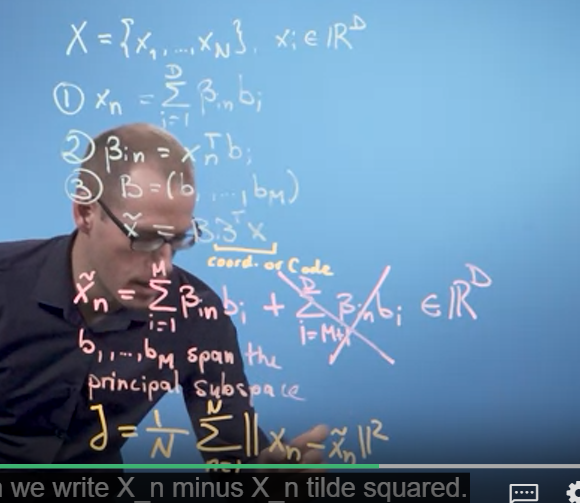 X = {x₁, ..., x_N}, xᵢ ∈ ℝᴰ
① xₙ = Σᵢ₌₁ᴰ βᵢₙ bᵢ
② βᵢₙ = xₙᵀ bᵢ
③ B = (b₁, ..., b_M)
x̃ = B Bᵀ x
coord. or Code
x̃ₙ = Σᵢ₌₁ᴹ βᵢₙ bᵢ + Σᵢ₌M₊₁ᴰ βᵢₙ bᵢ ∈ ℝᴰ
b₁, ..., b_M span the
principal subspace
J = 1/N Σₙ₌₁ᴺ ||xₙ - x̃ₙ||²
we write X_n minus X_n tilde squared.